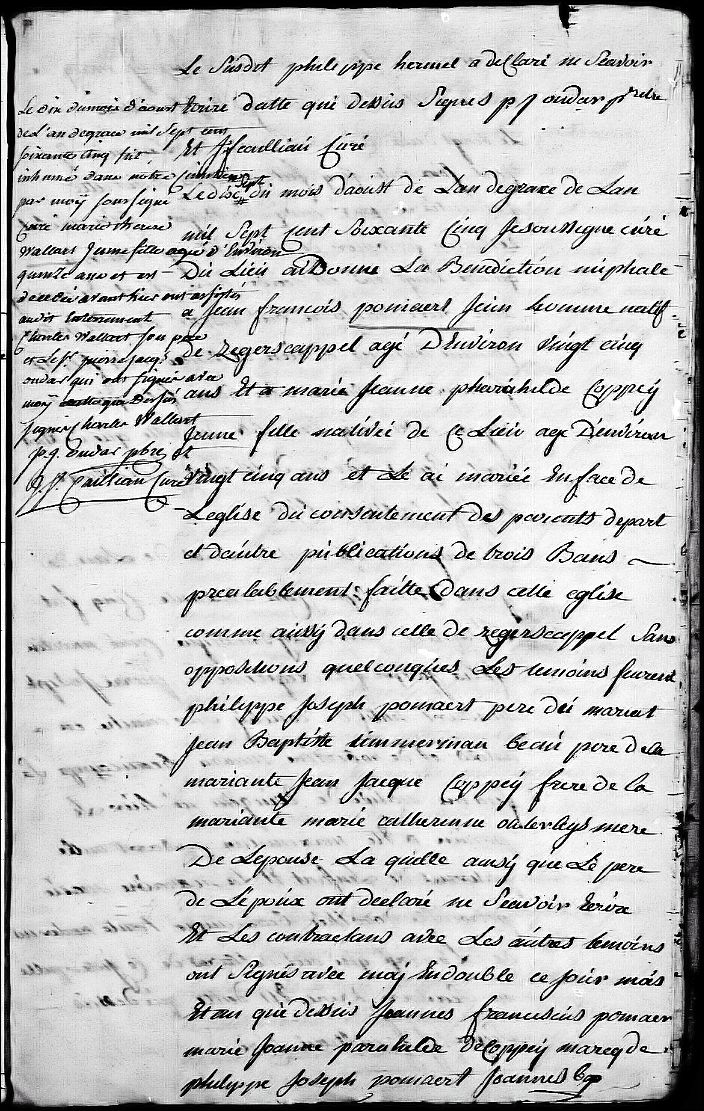 Le Susdit philippe hermel a declaré ne Scavoir
Ecrire datte que dessus Signes p j oudar pretre
Et JJ cailliau Curé
Le dix du mois d'aoust
de L'an de grace mil Sept cent
soixante cinq fut
inhumé dans notre Cimitiere
par moÿ Soussigné
Curé marie therese
Wallart Jeune fille agée d'Environ
quinze ans et est
decedée avant hier ont assistés
audit Enterrement
Charles Wallart son pere
et Le Sr pierre jacq
oudar qui ont signés avec
moÿ datte que dessus
signes Charles Wallart
p. j. oudar pbre et
J. J. Cailliau Curé
Le dise Sept du mois d'aoust de Lan de grace de Lan
mil Sept Cent Soixante Cinq Je soussigne curé
Du Lieu ai Donne La Benediction nuptiale
a Jean francois pomaert Jeun homme natif
de zegerscappel agé D'Environ Vingt cinq
ans Et a marie Jeanne pharahilde Coppeÿ
Jeune fille nativée de Ce Lieu age D'environ
Vingt cinq ans et Lé ai mariée En face de
Leglise du consentement des parents de part
et d'autre publications de trois Bans
prealablement faitte dans cette eglise
comme aussÿ dans celle de zegerscappel San
oppositions quelconques Les temoins furent
philippe Joseph pomaert pere du mariant
Jean Baptiste timmerman beau pere de la
mariante Jean Jacque Coppeÿ frere de la
mariante marie catherenne outerleys mere
De Lepouse La quelle aussy que Lé pere
de L'époux ont declaré ne Scavoir Ecrire
Et Les contractans avec Les autres temoins
ont Signés avec moÿ En double ce jour mois
Et an que dessus Joannes franciscus pomaer
marie Joanne parahilde de Coppeÿ marcq de
philippe Joseph pomaert Joannes bap